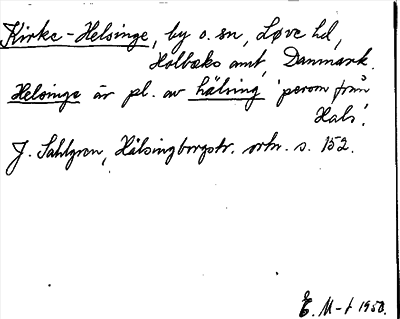 Kirke-Helsinge, by o. sn, Løve hd,
Holbæks amt, Danmark.
Helsinge är pl. av hälsing 'person från
Hals'.
J. Sahlgren, Hälsingborgstr. ortn. s. 152.
E. M-t 1950.